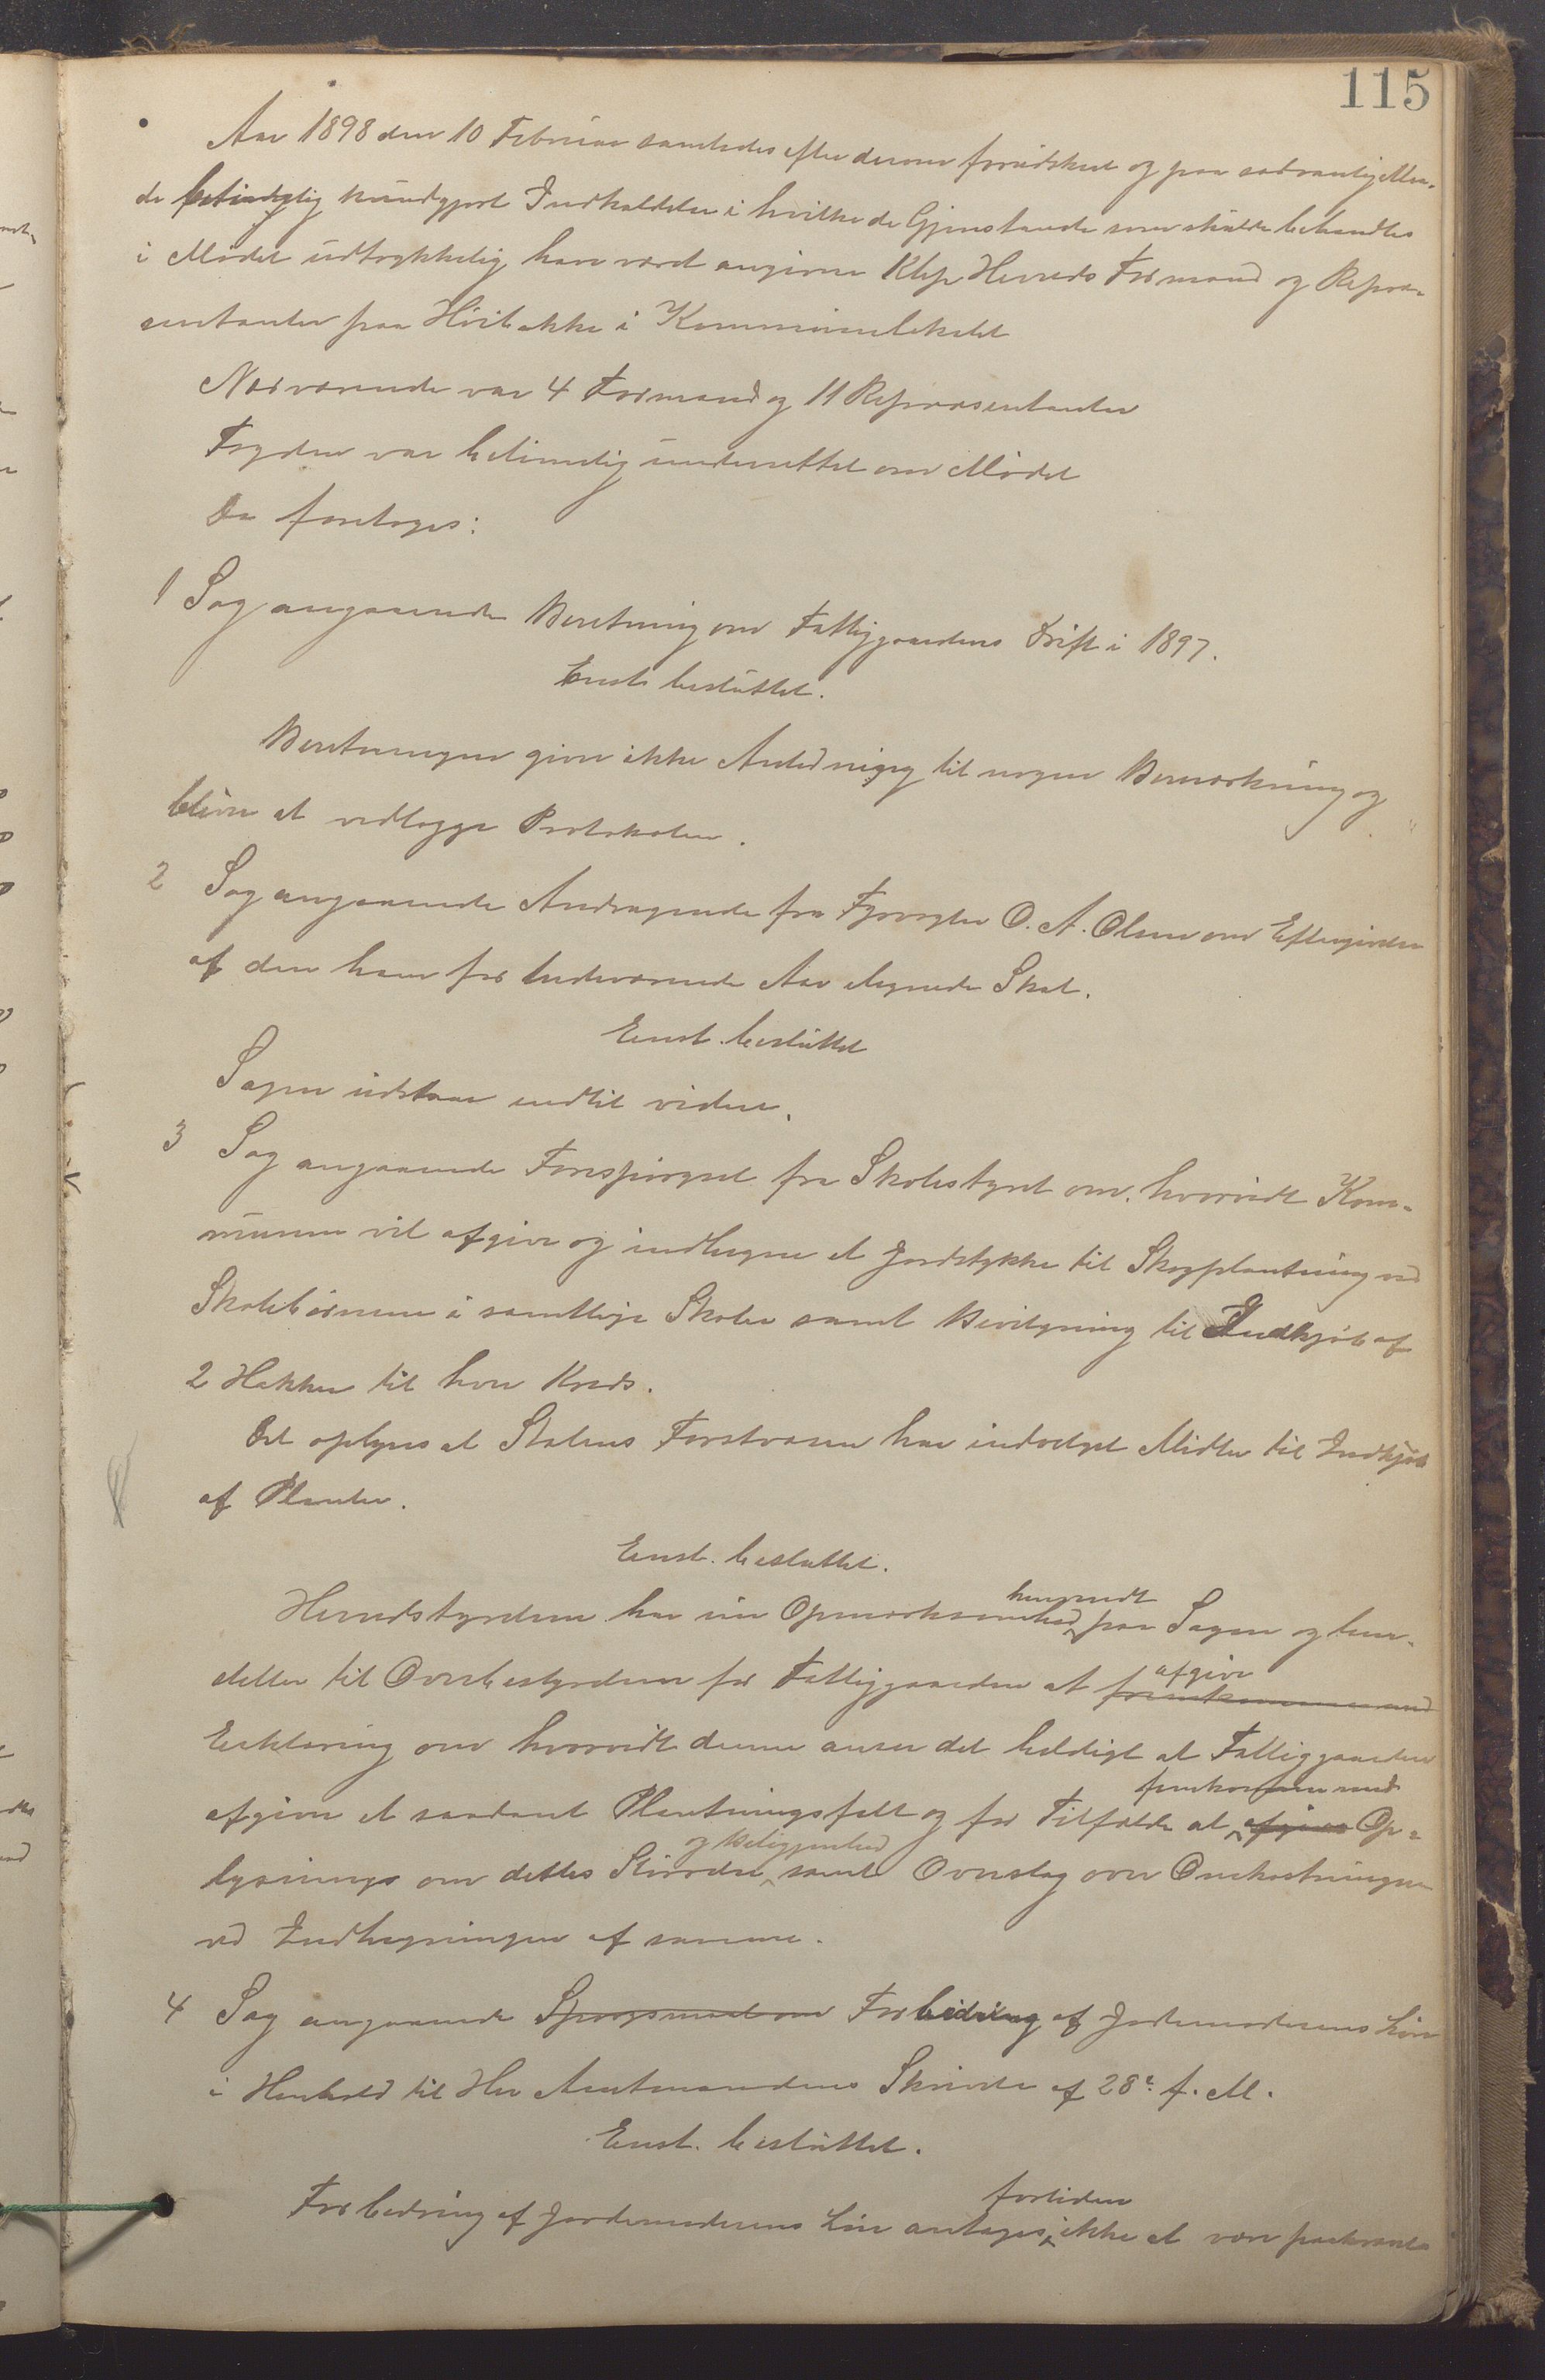 115
Aar 1898 den 10 Februar samledes efter derom forudskeet og paa sædvanlig Maa-
de betimelig kundgjort Indkaldelse i hvilke de Gjenstande som skulde behandles
i Mödet udtrykkelig have været angivne Klep Herreds Formænd og Repræ-
sentanter paa Höibakke i Kommunelokalet
Nærværende var 4 Formænd og 11 Repræsentanter
Fogden var betimelig underrettet om Mödet
Da foretoges:
1 Sag angaaende Beretning om Fattiggaardens Drift i 1897.
Enst. besluttet.
Beretningen giver ikke Anledning til nogen Bemærkning og
bliver at vedlægge Protokolen.
2 Sag angaaende Andragende fra Fyrvogter O. A. Olsen om Eftergivelse
af den ham for Indeværende Aar ilignede Skat.
Enst. besluttet
Sagen udstaar indtil videre.
3 Sag angaaende Forespörgsel fra Skolestyret om hvorvidt Kom-
munen vil afgive og indhegne et Jordstykke til Skogplantning ved
Skolebörnene i samtlige Skoler samt Bevilgning til Indkjöb af
2 Hakker til hver Kreds.
Det oplyses at Statens Forstvæsen har indvilget Midler til Indkjöb
af Planter.
Enst. besluttet.
Herredstyrelsen har sin Opmærksomhed henvendt paa Sagen og hen-
stiller til Overbestyrelsen for Fattiggaarden at fremkomme med afgive
Erklæring om hvorvidt denne anser det heldigt at Fattiggaarden
afgiver et saadant Plantningsfelt og for Tilfælde at afgive fremkomme med Op-
lysninge om dettes Störrelse og Beliggenhed samt Overslag over Omkostningen
ved Indhegningen af samme.
4 Sag angaaende Spörgsmaal om Forbedring af Jordemoderens Lön
i Henhold til Hr Amtmandens Skrivelse af 28e f. M.
Enst. besluttet.
Forbedring af Jordemoderens Lön antages fortiden ikke at være paakrævet